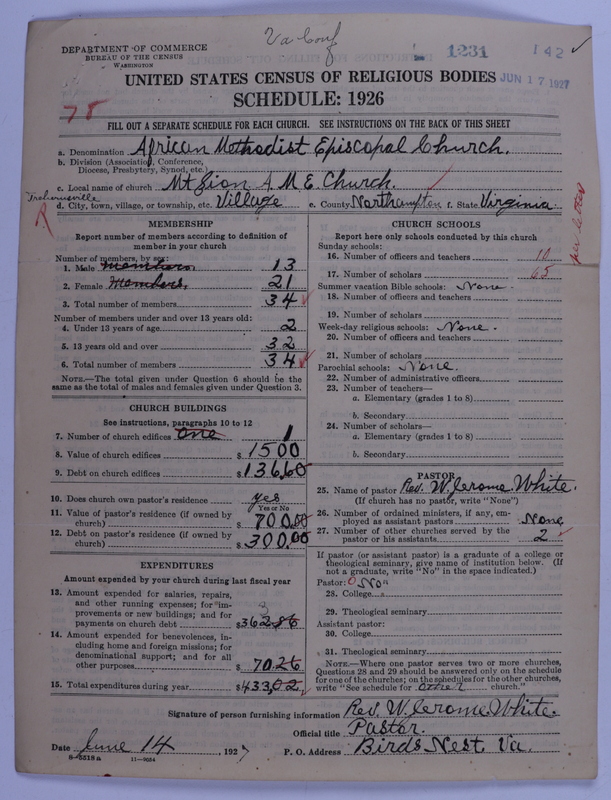 Va Conf
DEPARTMENT OF COMMERCE
BUREAU OF THE CENSUS
WASHINGTON
1231
142
JUN 17 1927
UNITED STATES CENSUS OF RELIGIOUS BODIES
SCHEDULE: 1926
78
FILL OUT A SEPARATE SCHEDULE FOR EACH CHURCH. SEE INSTRUCTIONS ON THE BACK OF THIS SHEET
a. Denomination African Methodist Episcopal Church.
b. Division (Association, Conference,
Diocese, Presbytery, Synod, etc.)
c. Local name of church Mt Zion A. M. E. Church.
d. City, town, village, or township, etc. Village e. County Northampton f. State Virginia
R
per letter
MEMBERSHIP
Report number of members according to definition of
member in your church
Number of members, by sex:
1. Male members. 13
2. Female Members. 21
3. Total number of members 34
Number of members under and over 13 years old:
4. Under 13 years of age 2
5. 13 years old and over 32
6. Total number of members 34
NOTE.—The total given under Question 6 should be the
same as the total of males and females given under Question 3.
CHURCH BUILDINGS
See instructions, paragraphs 10 to 12
7. Number of church edifices one 1
8. Value of church edifices $1500
9. Debt on church edifices $136.60
10. Does church own pastor's residence yes
Yes or No
11. Value of pastor's residence (if owned by
church) $700.00
12. Debt on pastor's residence (if owned by
church) $300.00
EXPENDITURES
Amount expended by your church during last fiscal year
13. Amount expended for salaries, repairs,
and other running expenses; for improvements
or new buildings; and for
payments on church debt $362.86
14. Amount expended for benevolences, including
home and foreign missions; for
denominational support; and for all
other purposes $70.26
15. Total expenditures during year $433.02
CHURCH SCHOOLS
Report here only schools conducted by this church
Sunday schools:
16. Number of officers and teachers 10
17. Number of scholars 65
Summer vacation Bible schools: None.
18. Number of officers and teachers
19. Number of scholars
Week-day religious schools: None.
20. Number of officers and teachers
21. Number of scholars
Parochial schools: None.
22. Number of administrative officers
23. Number of teachers—
a. Elementary (grades 1 to 8)
b. Secondary
24. Number of scholars—
a. Elementary (grades 1 to 8)
b. Secondary
PASTOR
25. Name of pastor Rev. W. Jerome White.
(If church has no pastor, write "None")
26. Number of ordained ministers, if any, employed
as assistant pastors None
27. Number of other churches served by the
pastor or his assistants 2
If pastor (or assistant pastor) is a graduate of a college or
theological seminary, give name of institution below. (If
not a graduate, write "No" in the space indicated.)
Pastor: No
28. College
29. Theological seminary
Assistant pastor:
30. College
31. Theological seminary
NOTE.—Where one pastor serves two or more churches,
Questions 28 and 29 should be answered only on the schedule
for one of the churches; on the schedules for the other churches,
write "See schedule for other church."
Signature of person furnishing information Rev. W. Jerome White.
Official title Pastor.
Date June 14, 1927 P. O. Address Birds Nest Va.
8-5518a 11-9054